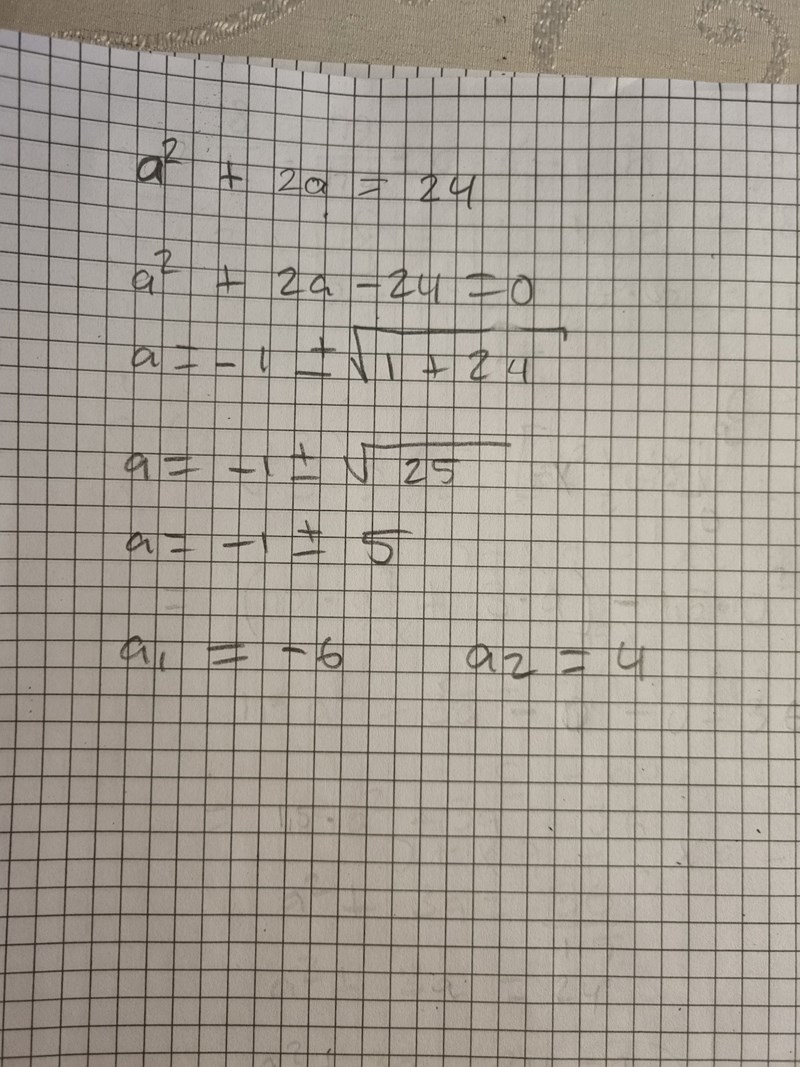 a² + 2a = 24
a² + 2a - 24 = 0
a = - 1 ± √1 + 24
a = -1 ± √25
a = -1 ± 5
a₁ = -6 a₂ = 4